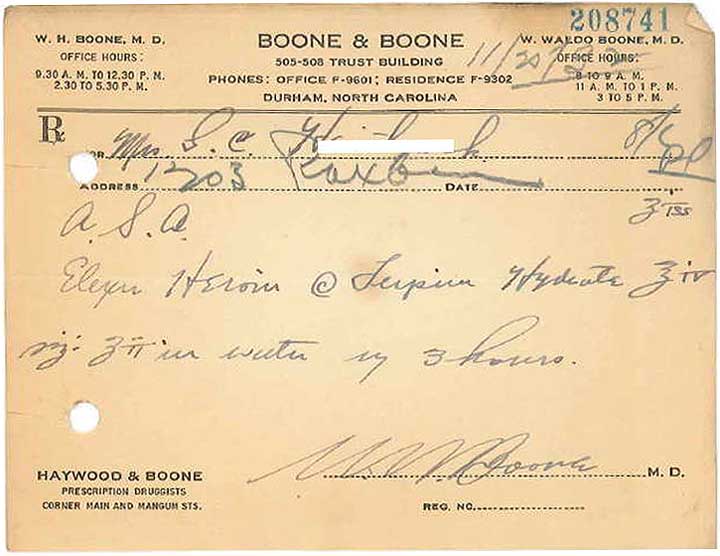 208741
W. H. BOONE, M. D.
OFFICE HOURS:
9.30 A. M. TO 12.30 P. M.
2.30 TO 5.30 P. M.
BOONE & BOONE
505-508 TRUST BUILDING
PHONES: OFFICE F-9601; RESIDENCE F-9302
DURHAM, NORTH CAROLINA
W. WALDO BOONE, M. D.
OFFICE HOURS:
8 TO 9 A. M.
11 A. M. TO 1 P. M.
3 TO 5 P. M.
11/20/32
℞
FOR Mrs S. C.
ADDRESS 1203 DATE
A. S. A. ʒiss
Elixir Heroin @ Terpin Hydrate ʒiv
sig. ʒii in water q 3 hours.
W. W. Boone M. D.
HAYWOOD & BOONE
PRESCRIPTION DRUGGISTS
CORNER MAIN AND MANGUM STS.
REG. NO.